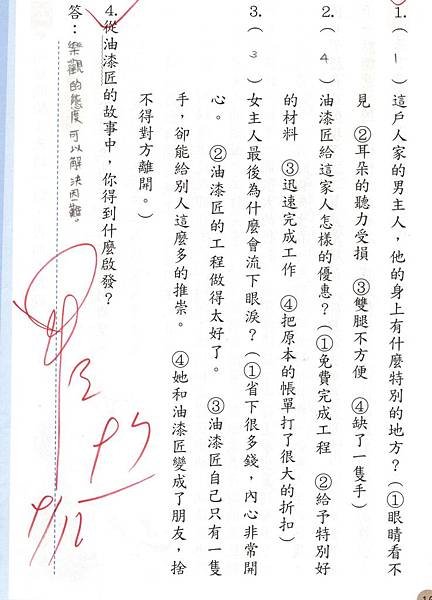 1.（ 1 ）這戶人家的男主人，他的身上有什麼特別的地方？（①眼睛看不
見　②耳朵的聽力受損　③雙腿不方便　④缺了一隻手）
2.（ 4 ）油漆匠給這家人怎樣的優惠？（①免費完成工程　②給予特別好
的材料　③迅速完成工作　④把原本的帳單打了很大的折扣）
3.（ 3 ）女主人最後為什麼會流下眼淚？（①省下很多錢，內心非常開
心。　②油漆匠的工程做得太好了。　③油漆匠自己只有一隻
手，卻能給別人這麼多的推崇。　④她和油漆匠變成了朋友，捨
不得對方離開。）
4.從油漆匠的故事中，你得到什麼啟發？
答：樂觀的態度可以解決困難。